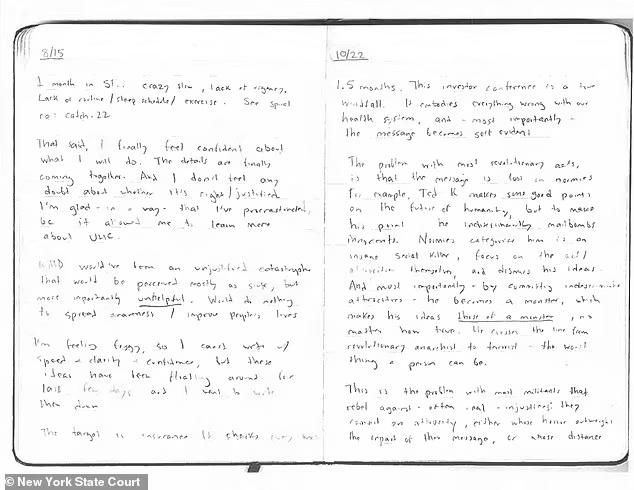 8/15
1 month in SF: crazy slow, lack of urgency.
Lack of routine/sleep schedule/exercise. See spiel
re: catch-22
That said, I finally feel confident about
what I will do. The details are finally
coming together. And I don't feel any
doubt about whether it's right/justified.
I'm glad - in a way - that I've procrastinated,
bc it allowed me to learn more
about UHC.
would've been an unjustified catastrophe
that would be perceived mostly as sick, but
more importantly unhelpful. Would do nothing
to spread awareness / improve people's lives
I'm feeling foggy, so I can't write w/
speed + clarity + confidence, but these
ideas have been floating around for
last few days and I want to write
them down
The target is insurance. It checks every box
10/22
1.5 months. This investor conference is a true
windfall. It embodies everything wrong with our
health system, and - most importantly -
the message becomes self evident
The problem with most revolutionary acts,
is that the message is lost on normies
for example, Ted K makes some good points
on the future of humanity, but to make
his point he indiscriminately mailbombs
innocents. Normies categorize him as an
insane serial killer, focus on the act/
atrocities themselves, and dismiss his ideas.
And most importantly - by committing indiscriminate
atrocities - he becomes a monster, which
makes his ideas those of a monster, no
matter how true. He crosses the line from
revolutionary anarchist to terrorist - the worst
thing a person can be.
This is the problem with most militants that
rebel against - often real - injustices: they
commit an atrocity, either whose horror outweighs
the impact of their message, or whose distance
© New York State Court